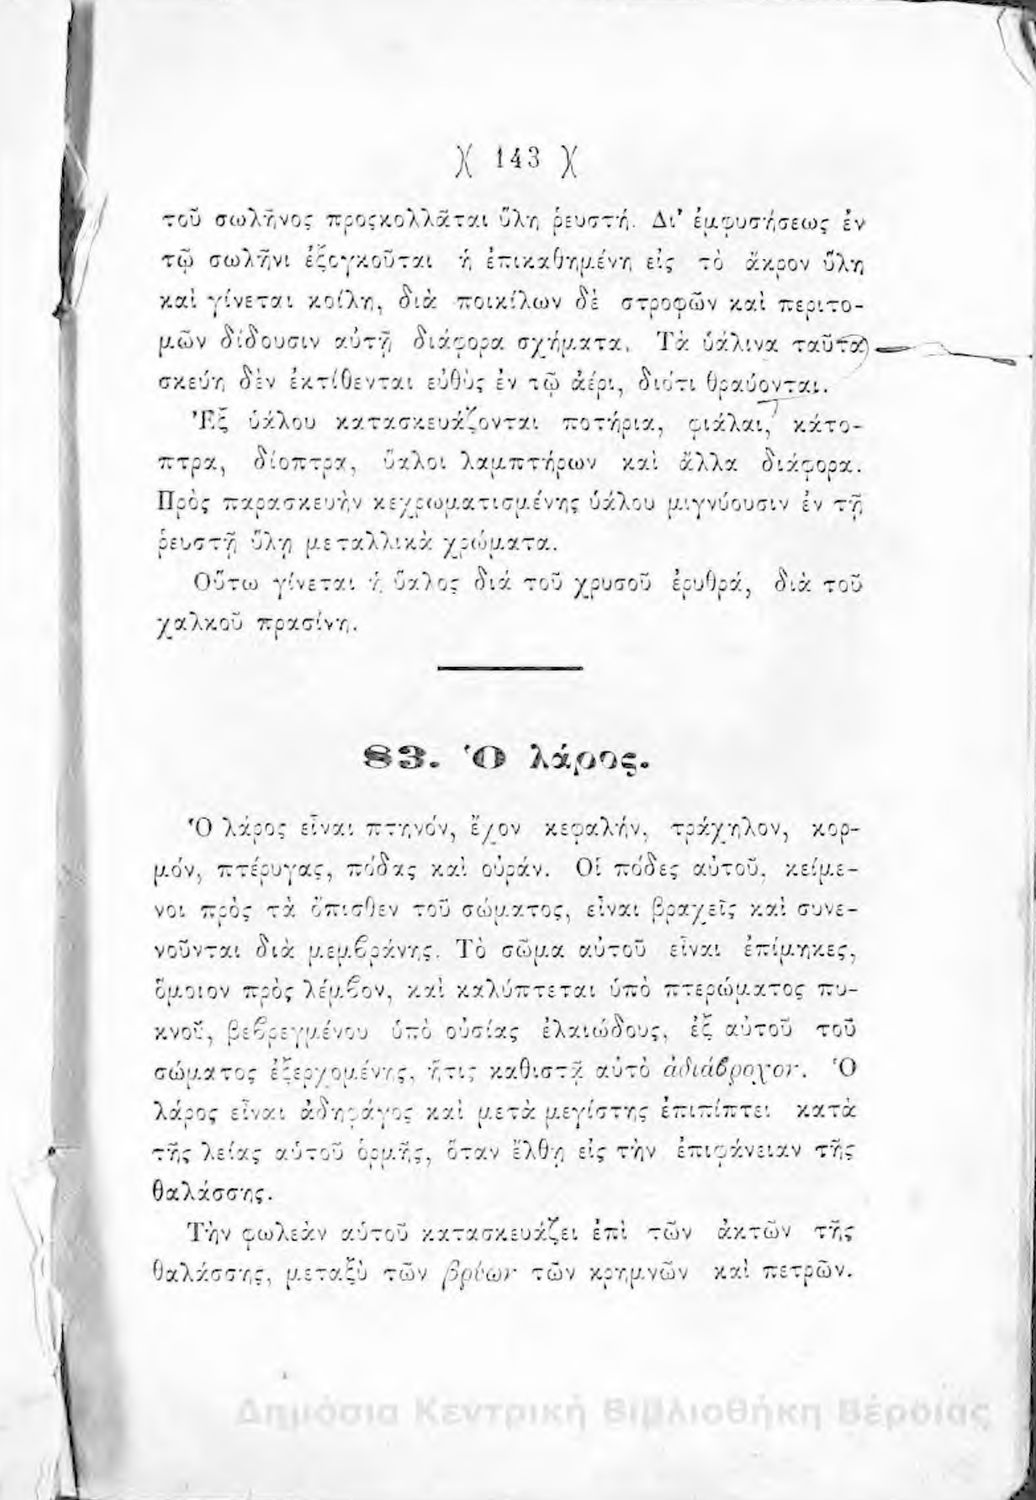 )( 143 )(
τοῦ σωλῆνος προςκολλᾶται ὕλη ῥευστή. Δι' ἐμφυσήσεως ἐν
τῷ σωλῆνι ἐξογκοῦται ἡ ἐπικαθημένη εἰς τὸ ἄκρον ὕλη
καὶ γίνεται κοίλη, διὰ ποικίλων δὲ στροφῶν καὶ περιτο-
μῶν δίδουσιν αὐτῇ διάφορα σχήματα. Τὰ ὑάλινα ταῦτα
σκεύη δὲν ἐκτίθενται εὐθὺς ἐν τῷ ἀέρι, διότι θραύονται.
Ἐξ ὑάλου κατασκευάζονται ποτήρια, φιάλαι, κάτο-
πτρα, δίοπτρα, ὕαλοι λαμπτήρων καὶ ἄλλα διάφορα.
Πρὸς παρασκευὴν κεχρωματισμένης ὑάλου μιγνύουσιν ἐν τῇ
ῥευστῇ ὕλῃ μεταλλικὰ χρώματα.
Οὕτω γίνεται ἡ ὕαλος διά τοῦ χρυσοῦ ἐρυθρά, διὰ τοῦ
χαλκοῦ πρασίνη.
83. Ὁ λάρος.
Ὁ λάρος εἶναι πτηνόν, ἔχον κεφαλήν, τράχηλον, κορ-
μόν, πτέρυγας, πόδας καὶ οὐράν. Οἱ πόδες αὐτοῦ, κείμε-
νοι πρὸς τὰ ὄπισθεν τοῦ σώματος, εἶναι βραχεῖς καὶ συνε-
νοῦνται διὰ μεμϐράνης. Τὸ σῶμα αὐτοῦ εἶναι ἐπίμηκες,
ὅμοιον πρὸς λέμϐον, καὶ καλύπτεται ὑπὸ πτερώματος πυ-
κνοῦ, βεϐρεγμένου ὑπὸ οὐσίας ἐλαιώδους, ἐξ αὐτοῦ τοῦ
σώματος ἐξερχομένης, ἥτις καθιστᾷ αὐτὸ ἀδιάϐροχον. Ὁ
λάρος εἶναι ἀδηφάγος καὶ μετὰ μεγίστης ἐπιπίπτει κατὰ
τῆς λείας αὐτοῦ ὁρμῆς, ὅταν ἔλθῃ εἰς τὴν ἐπιφάνειαν τῆς
θαλάσσης.
Τὴν φωλεὰν αὐτοῦ κατασκευάζει ἐπὶ τῶν ἀκτῶν τῆς
θαλάσσης, μεταξὺ τῶν βρύων τῶν κρημνῶν καὶ πετρῶν.
Δημόσια Κεντρική Βιβλιοθήκη Βέροιας